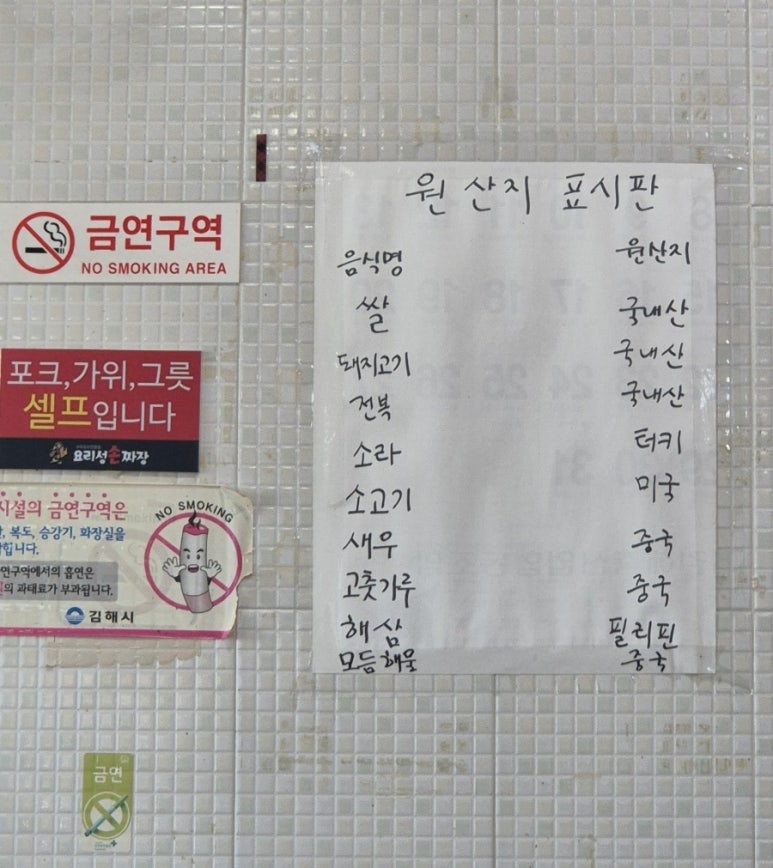 원산지 표시판
음식명 원산지
쌀 국내산
돼지고기 국내산
전복 국내산
소라 터키
소고기 미국
새우 중국
고춧가루 중국
해삼 필리핀
모듬해물 중국
금연구역
NO SMOKING AREA
포크,가위,그릇
셀프입니다
요리성손짜장
시설의 금연구역은
복도, 승강기, 화장실을
합니다.
연구역에서의 흡연은
의 과태료가 부과됩니다.
김해시
NO SMOKING
금연